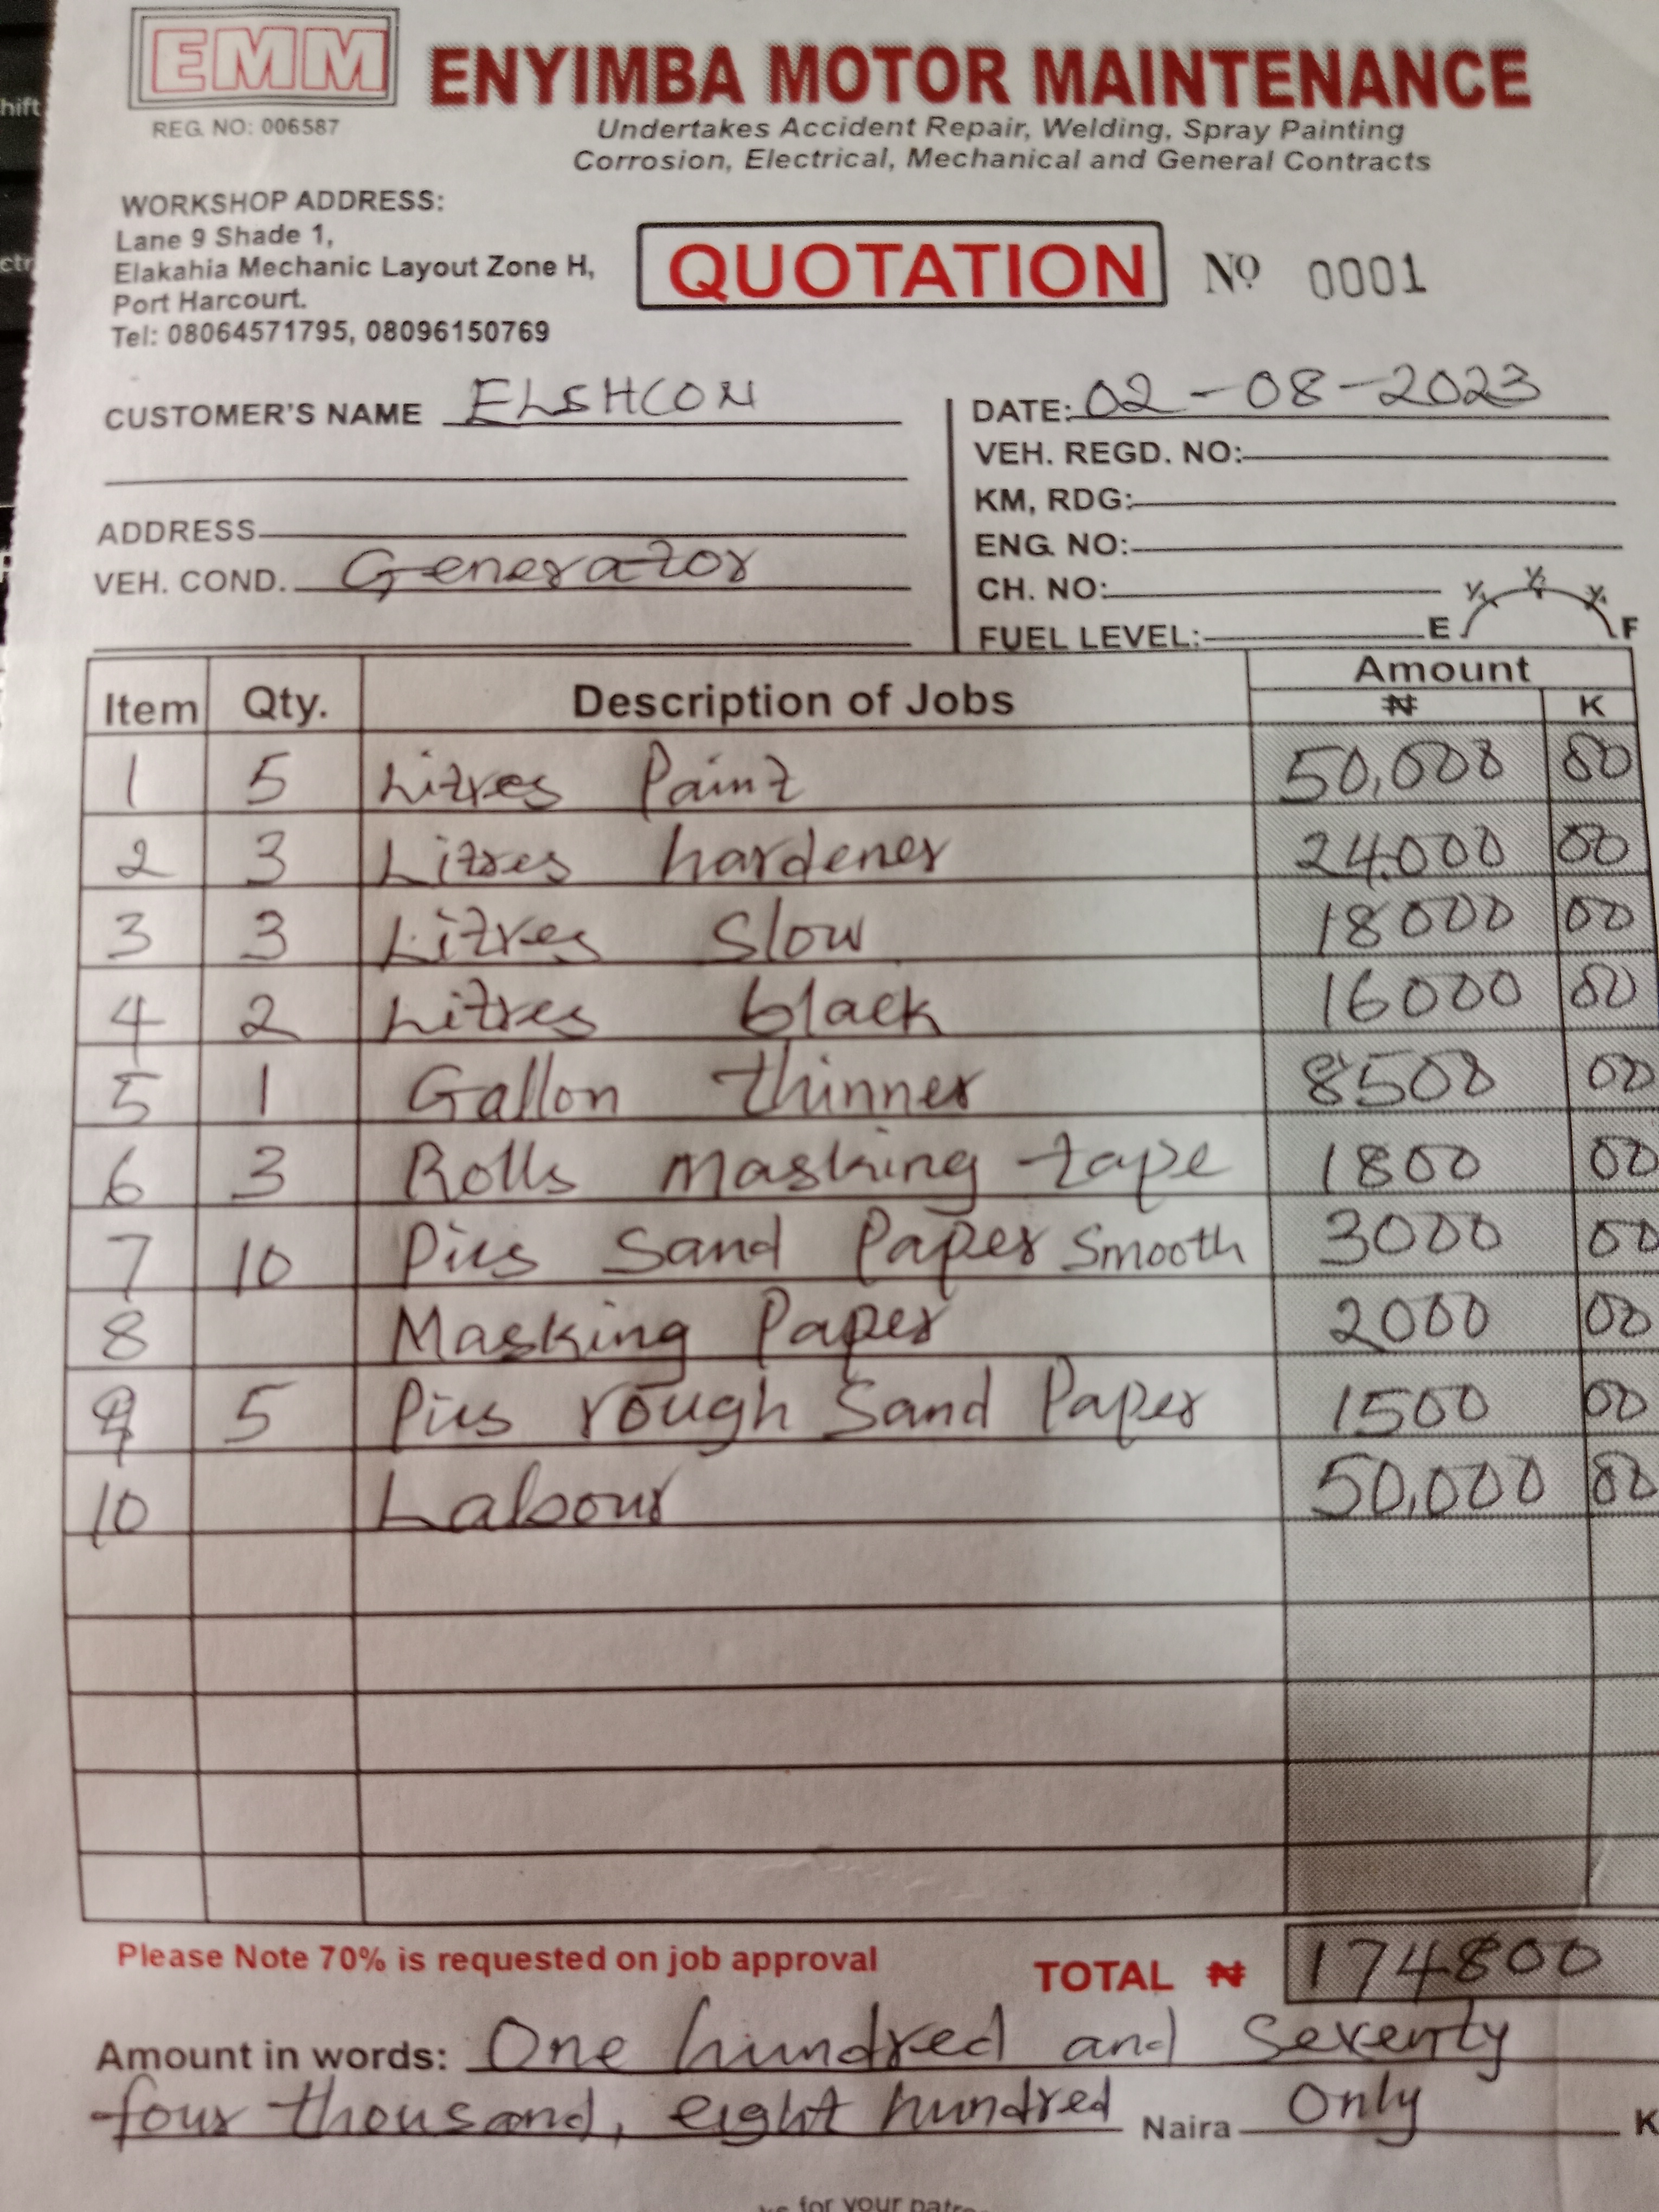 hift
ctr
EMM
ENYIMBA MOTOR MAINTENANCE
REG. NO: 006587
Undertakes Accident Repair, Welding, Spray Painting
Corrosion, Electrical, Mechanical and General Contracts
WORKSHOP ADDRESS:
Lane 9 Shade 1,
Elakahia Mechanic Layout Zone H,
Port Harcourt.
Tel: 08064571795, 08096150769
QUOTATION Nº 0001
CUSTOMER'S NAME ELSHCON
ADDRESS
VEH. COND. Generator
DATE: 02-08-2023
VEH. REGD. NO:
KM, RDG:
ENG. NO:
CH. NO:
FUEL LEVEL: E ¼ ½ ¾ F
Item Qty. Description of Jobs Amount
₦ K
1 5 Litres Paint 50,000 00
2 3 Litres hardener 24000 00
3 3 Litres Slow 18000 00
4 2 Litres black 16000 00
5 1 Gallon thinner 8500 00
6 3 Rolls Masking tape 1800 00
7 10 Pics Sand Paper Smooth 3000 00
8 Masking Paper 2000 00
9 5 Pics rough Sand Paper 1500 00
10 Labour 50,000 00
Please Note 70% is requested on job approval
TOTAL ₦ 174800
Amount in words: One hundred and Seventy
four thousand, eight hundred Naira Only K
for your